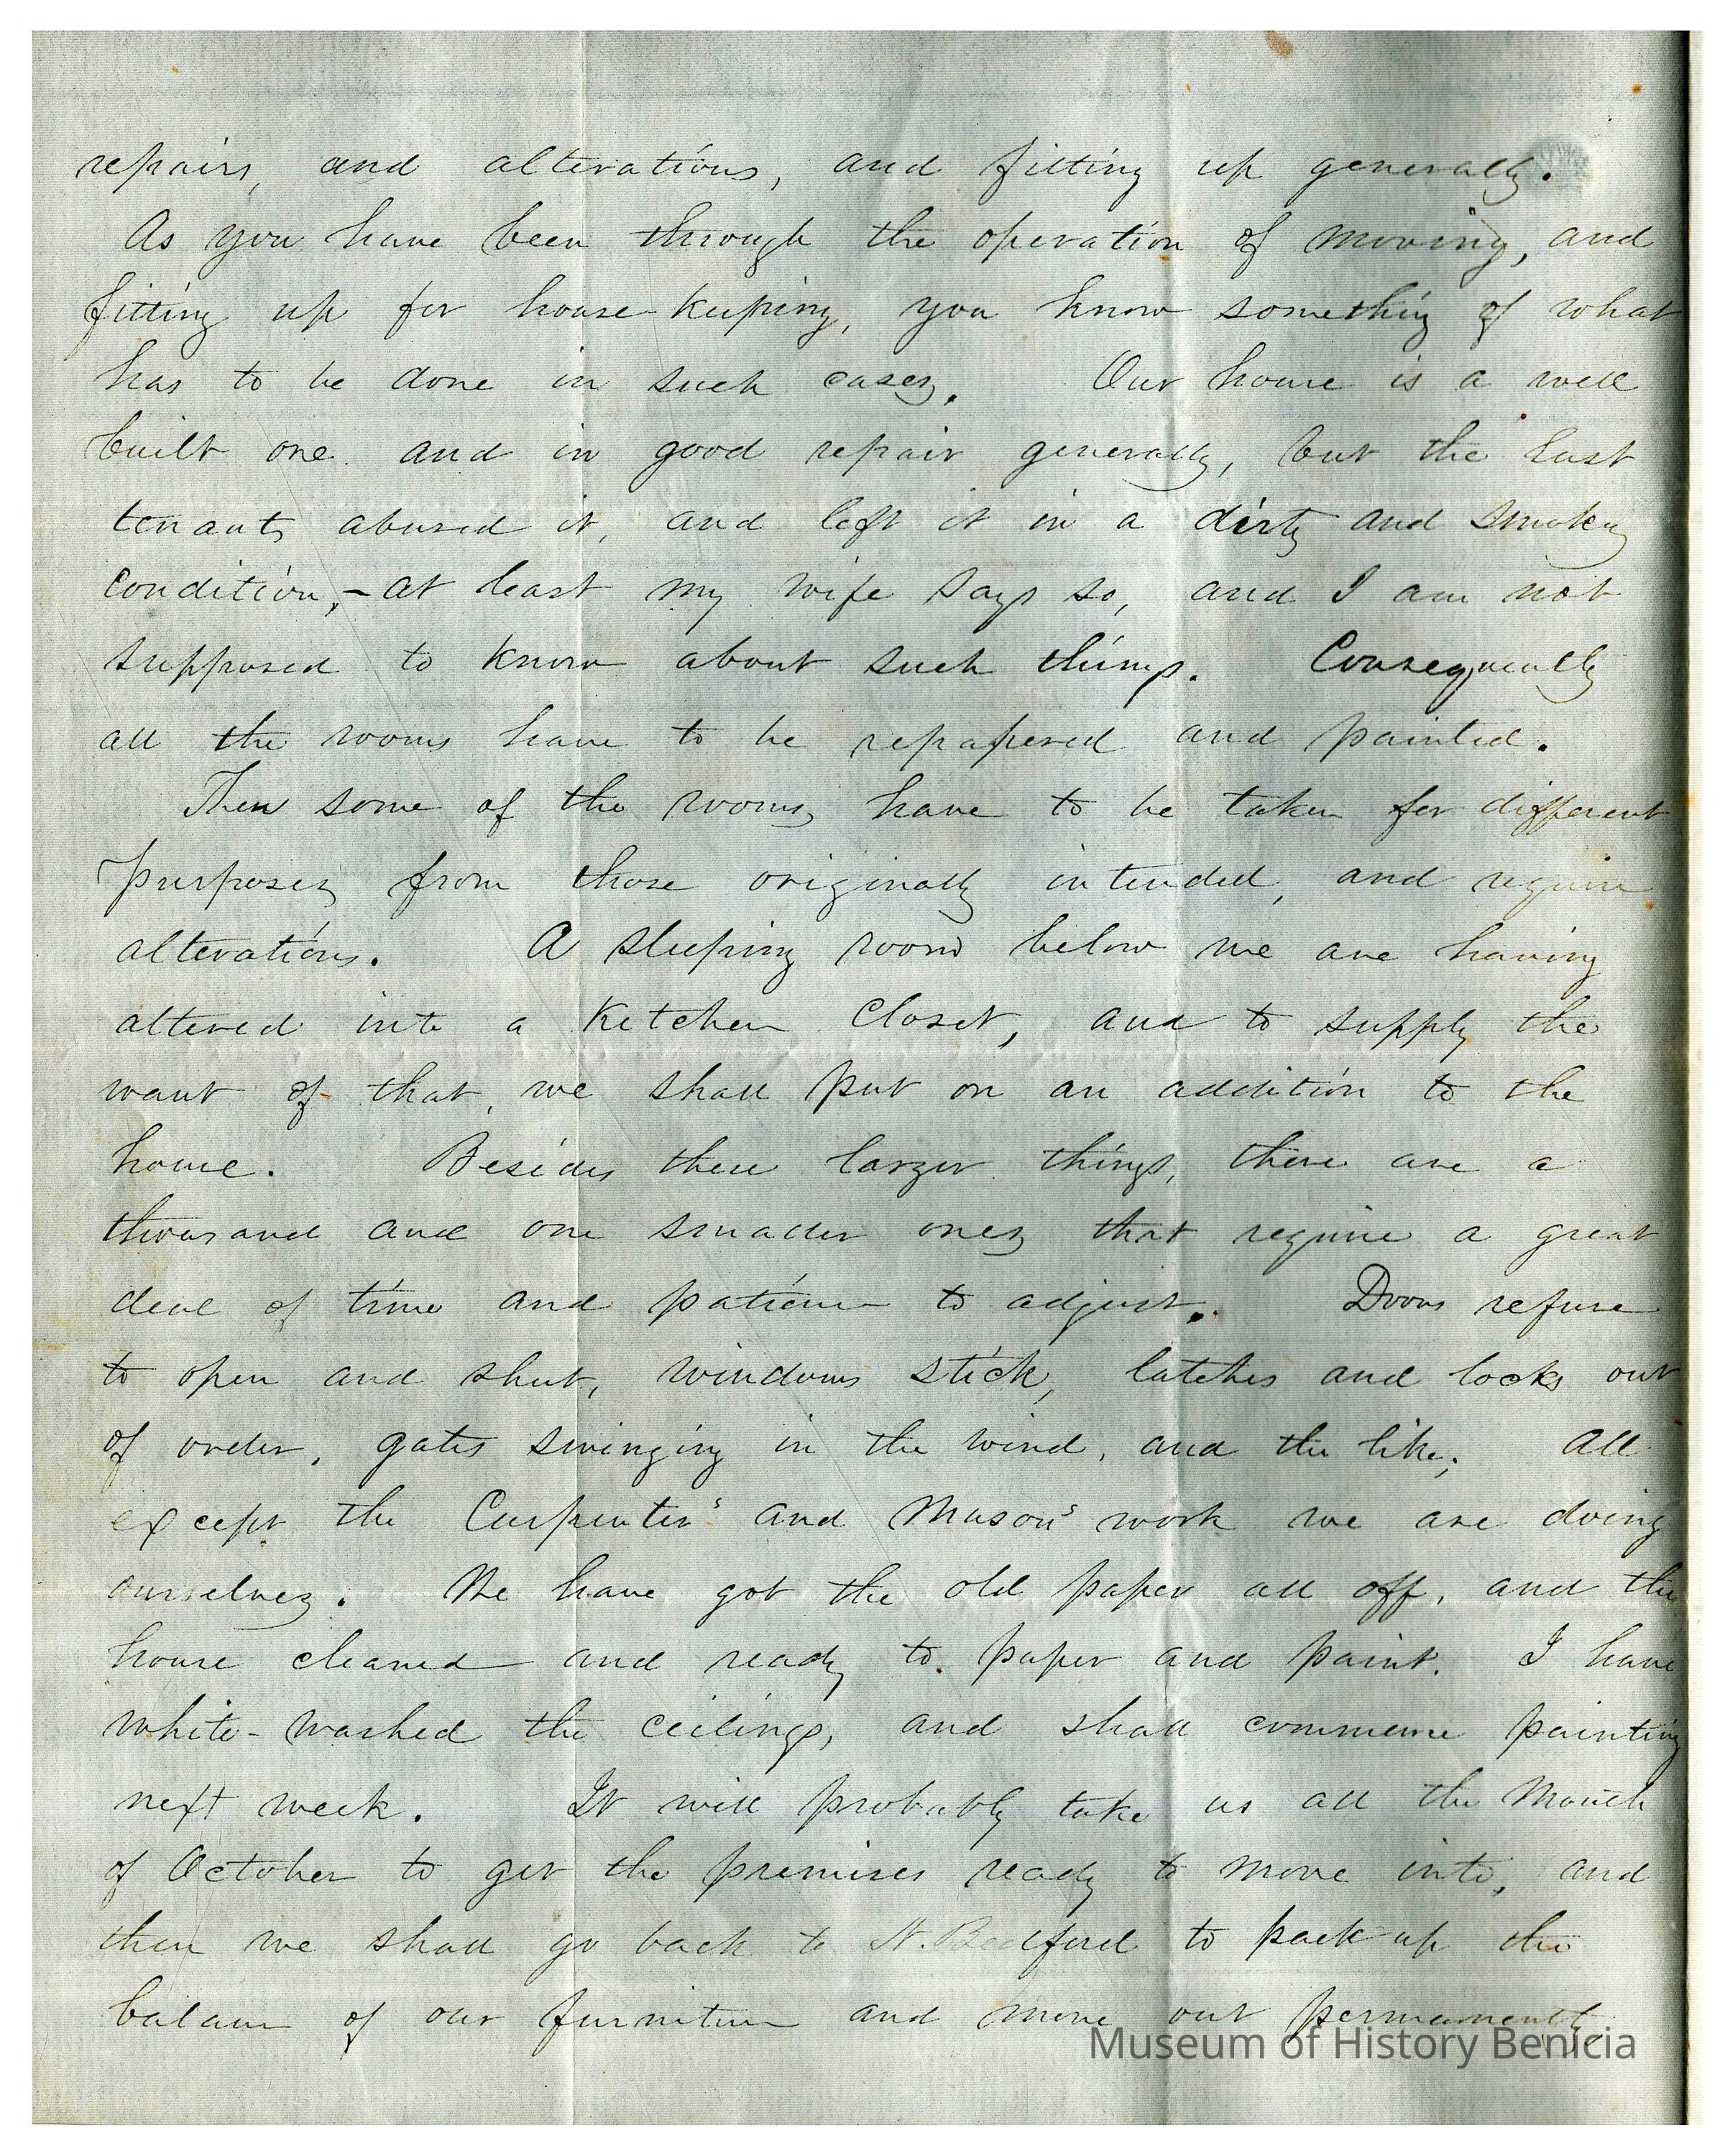 repairs, and alterations, and fitting up generally.
As you have been through the operation of moving, and
fitting up for house-keeping, you know something of what
has to be done in such cases. Our house is a well
built one and in good repair generally, but the last
tenants abused it, and left it in a dirty and smoky
condition,- at least my wife says so, and I am not
supposed to know about such things. Consequently
all the rooms have to be repapered and painted.
Then some of the rooms have to be taken for different
purposes from those originally intended, and require
alterations. A sleeping room below we are having
altered into a Kitchen Closet, and to supply the
want of that, we shall put on an addition to the
house. Besides these larger things, there are a
thousand and one smaller ones that require a great
deal of time and patience to adjust. Doors refuse
to open and shut, windows stick, latches and locks out
of order, gates swinging in the wind, and the like; All
except the Carpenter's and Mason's work we are doing
ourselves. We have got the old paper all off, and the
house cleaned and ready to paper and paint. I have
white-washed the ceilings, and shall commence painting
next week. It will probably take us all the Month
of October to get the premises ready to move into, and
then we shall go back to N. Bedford to pack up the
balance of our furniture and move out permanently.
Museum of History Benicia